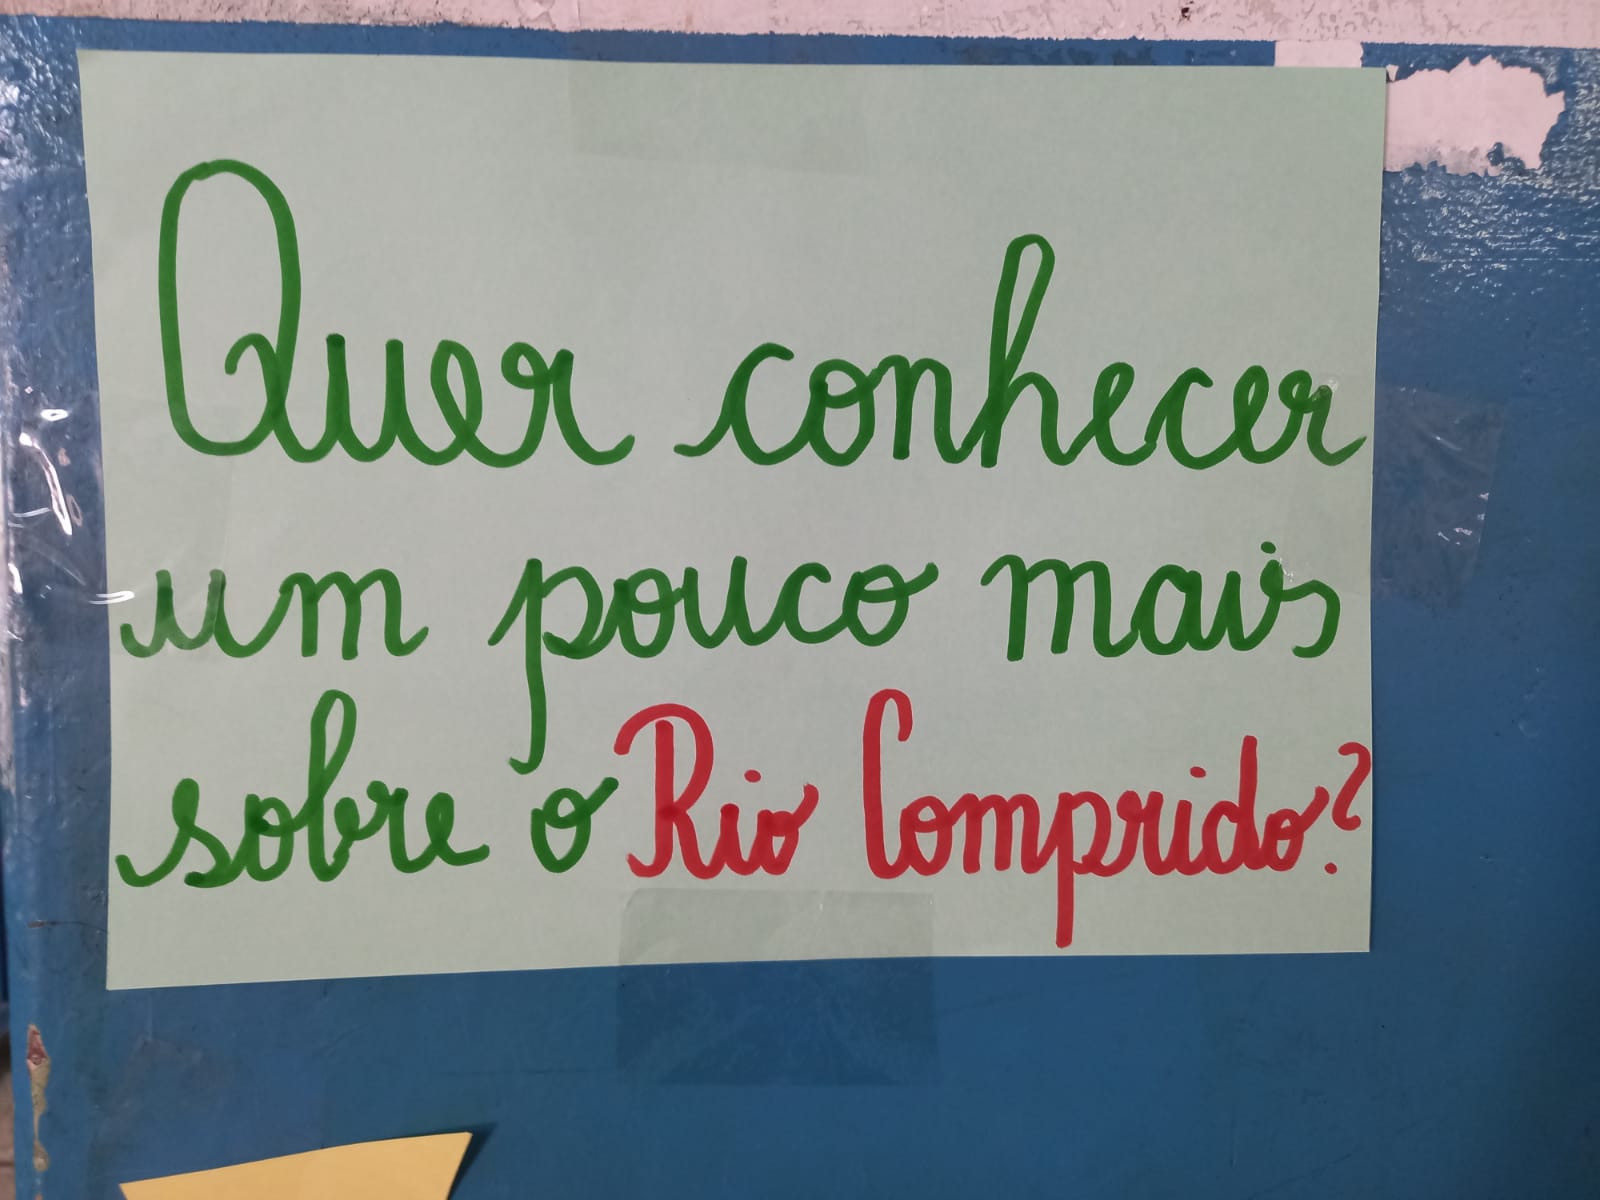 Quer conhecer
um pouco mais
sobre o Rio Comprido?